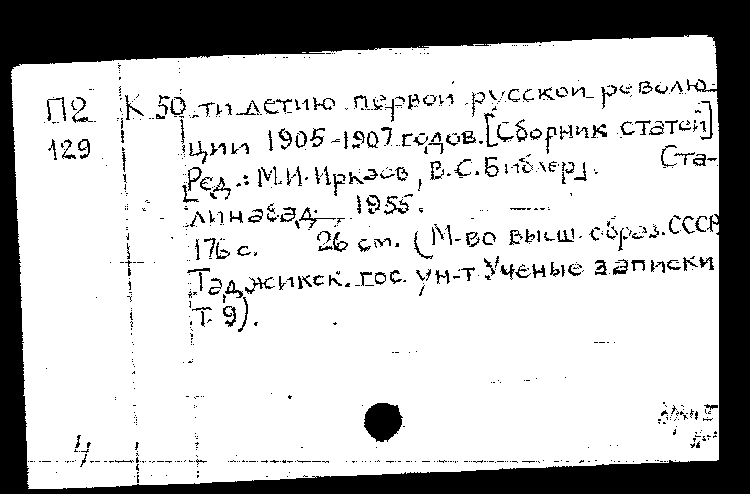 П2 К 50-ти летию первой русской револю-
129 ции 1905-1907 годов. [Сборник статей]
[Ред.: М.И. Иркаев, В.С. Библер]. Ста-
линабад, 1955.
176 с. 26 см. (М-во высш. образ. СССР
Таджикск. гос. ун-т Ученые записки
Т. 9).
4